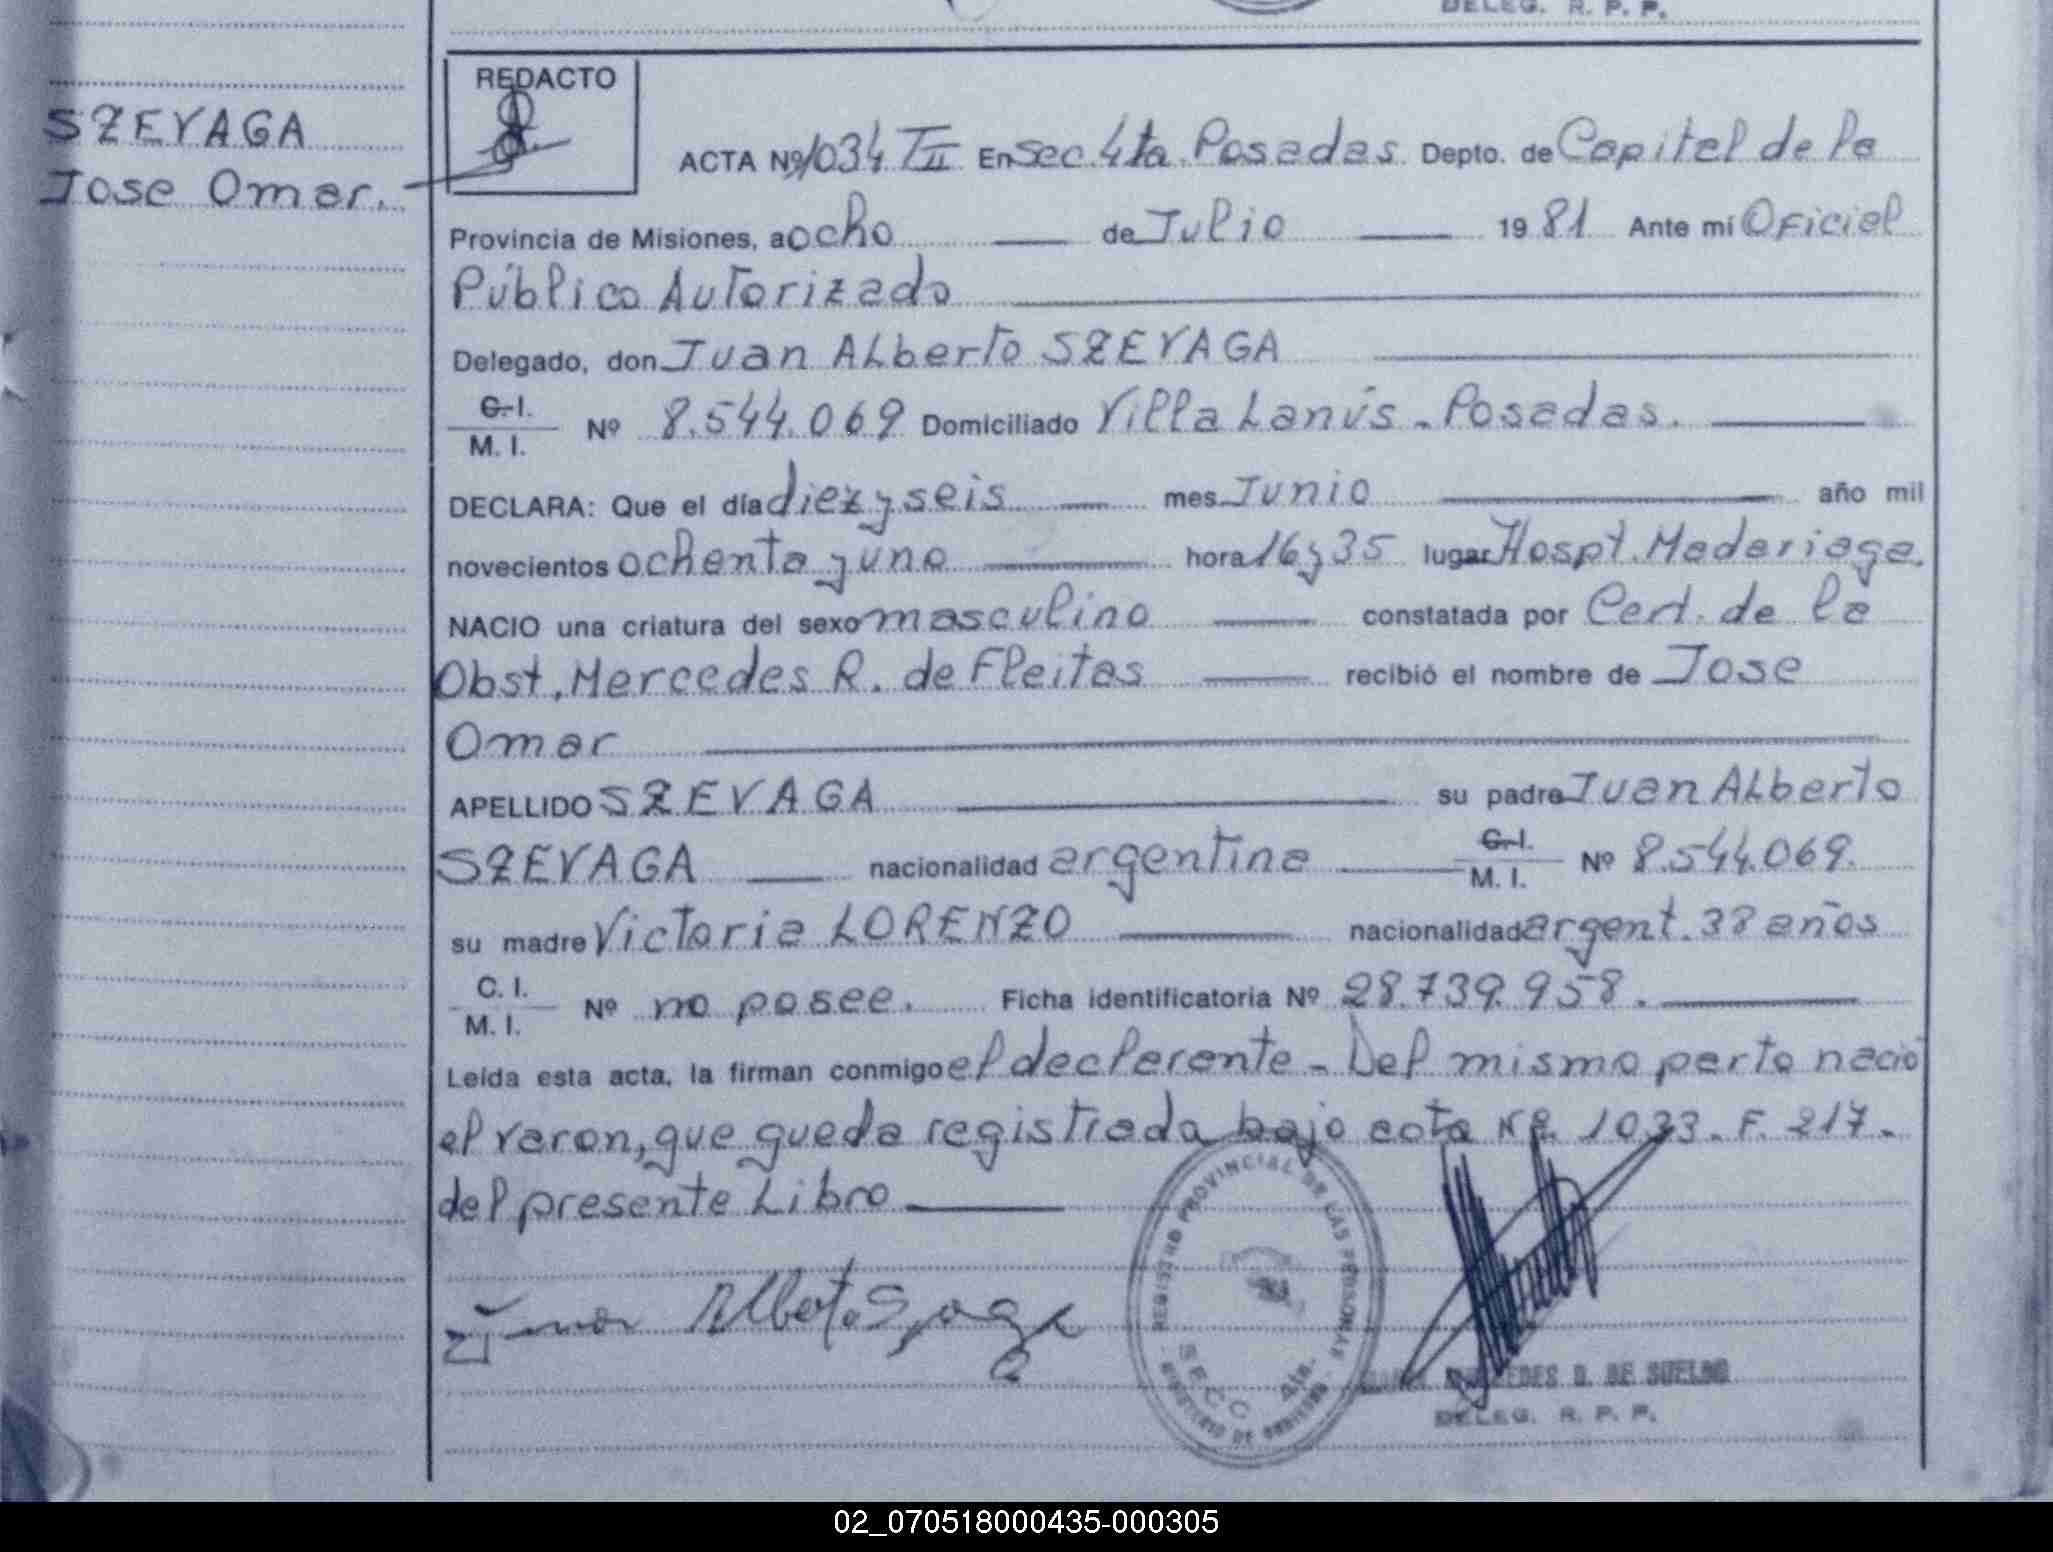 DELEG. R. P. P.
REDACTO
SZEVAGA
Jose Omar.
ACTA Nº 1034 TII En Sec. 4ta. Posadas Depto. de Capital de la
Provincia de Misiones, a ocho de Julio 19 81 Ante mí Oficial
Público Autorizado
Delegado, don Juan ALberto SZEVAGA
C. I. / M. I. Nº 8.544.069 Domiciliado Villa Lanús - Posadas.
DECLARA: Que el día diez y seis mes Junio año mil
novecientos ochenta y uno hora 16 y 35 lugar Hospt. Madariaga.
NACIO una criatura del sexo masculino constatada por Cert. de la
Obst. Mercedes R. de Fleitas recibió el nombre de Jose
Omar
APELLIDO SZEVAGA su padre Juan ALberto
SZEVAGA nacionalidad argentina C. I. / M. I. Nº 8.544.069.
su madre Victoria LORENZO nacionalidad argent. 38 años
C. I. / M. I. Nº no posee. Ficha identificatoria Nº 28.739.958.
Leída esta acta, la firman conmigo el declarante - Del mismo parto nació
el varon, que queda registrada bajo acta Nº 1033. F. 217.
del presente Libro
Juan Alberto
REGISTRO PROVINCIAL DE LAS PERSONAS
SECC. 4ta.
MINISTERIO DE GOBIERNO
DE SUELDO
DELEG. R. P. P.
02_070518000435-000305